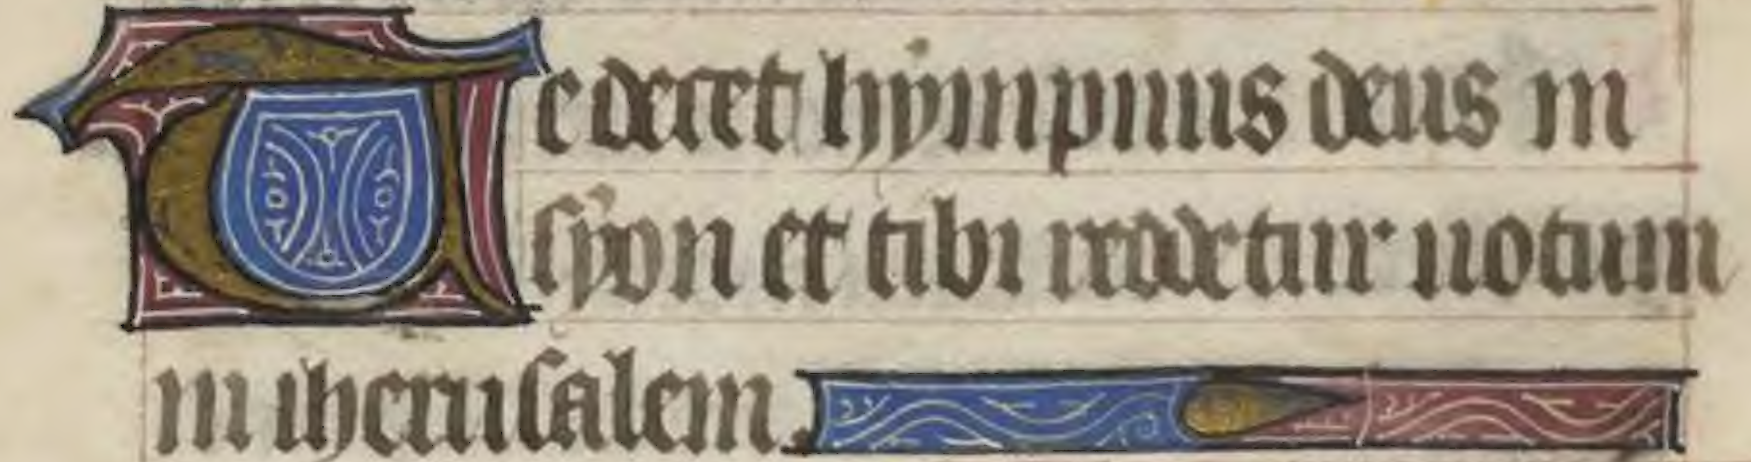 Te decet hympnus deus in
syon et tibi reddetur uotum
in iherusalem.